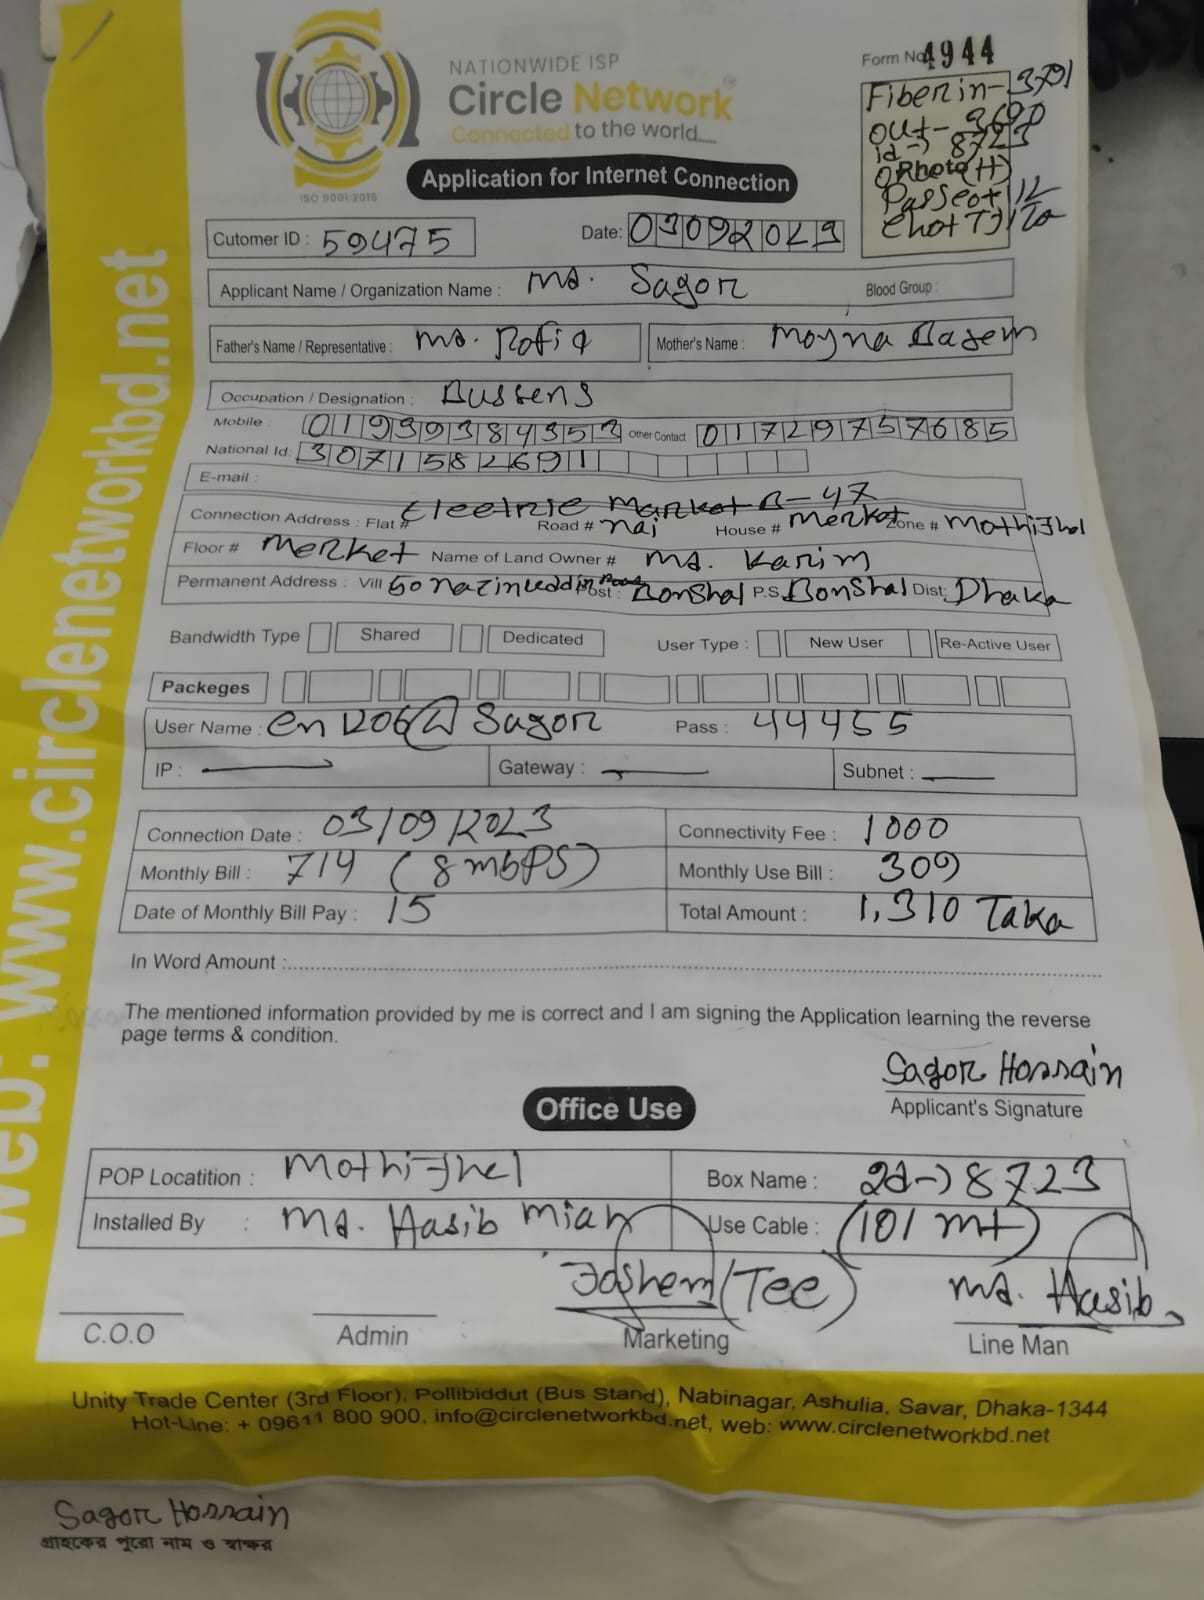 NATIONWIDE ISP
Circle Network
Connected to the world.....
ISO 9001:2015
Form No 4944
Fiber in- 3701
out- 3690
id -> 8723
Photo (H)
Application for Internet Connection
Cutomer ID : 59475
Date: 03092023
Applicant Name / Organization Name : Md. Sagor
Blood Group :
Father's Name / Representative : Md. Rofiq
Mother's Name : Moyna Bagem
Occupation / Designation : Bussens
Mobile : 01939384353 Other Contact : 01729757685
National Id: 3071582691
E-mail :
Electric Market B-47
Connection Address : Flat # Road # nai House # Merket Zone # MothiJhel
Floor # Merket Name of Land Owner # Md. Karim
Permanent Address : Vill 60 nazinuddin Road Post : Bonshal P.S Bonshal Dist: Dhaka
Bandwidth Type Shared Dedicated User Type : New User Re-Active User
Packeges
User Name : en1206@Sagor Pass : 44455
IP : Gateway : Subnet :
Connection Date : 03/09/2023 Connectivity Fee : 1000
Monthly Bill : 714 (8 mbPS) Monthly Use Bill : 309
Date of Monthly Bill Pay : 15 Total Amount : 1,310 Taka
In Word Amount :
The mentioned information provided by me is correct and I am signing the Application learning the reverse
page terms & condition.
Sagor Hossain
Applicant's Signature
Office Use
POP Locatition : MothiJhel Box Name : 2d->8723
Installed By : Md. Hasib Miah Use Cable : (101 mt)
Joshem (Tee) Md. Hasib
C.O.O Admin Marketing Line Man
Unity Trade Center (3rd Floor), Pollibiddut (Bus Stand), Nabinagar, Ashulia, Savar, Dhaka-1344
Hot-Line: + 09611 800 900, info@circlenetworkbd.net, web: www.circlenetworkbd.net
web: www.circlenetworkbd.net
Sagor Hossain
গ্রাহকের পুরো নাম ও স্বাক্ষর